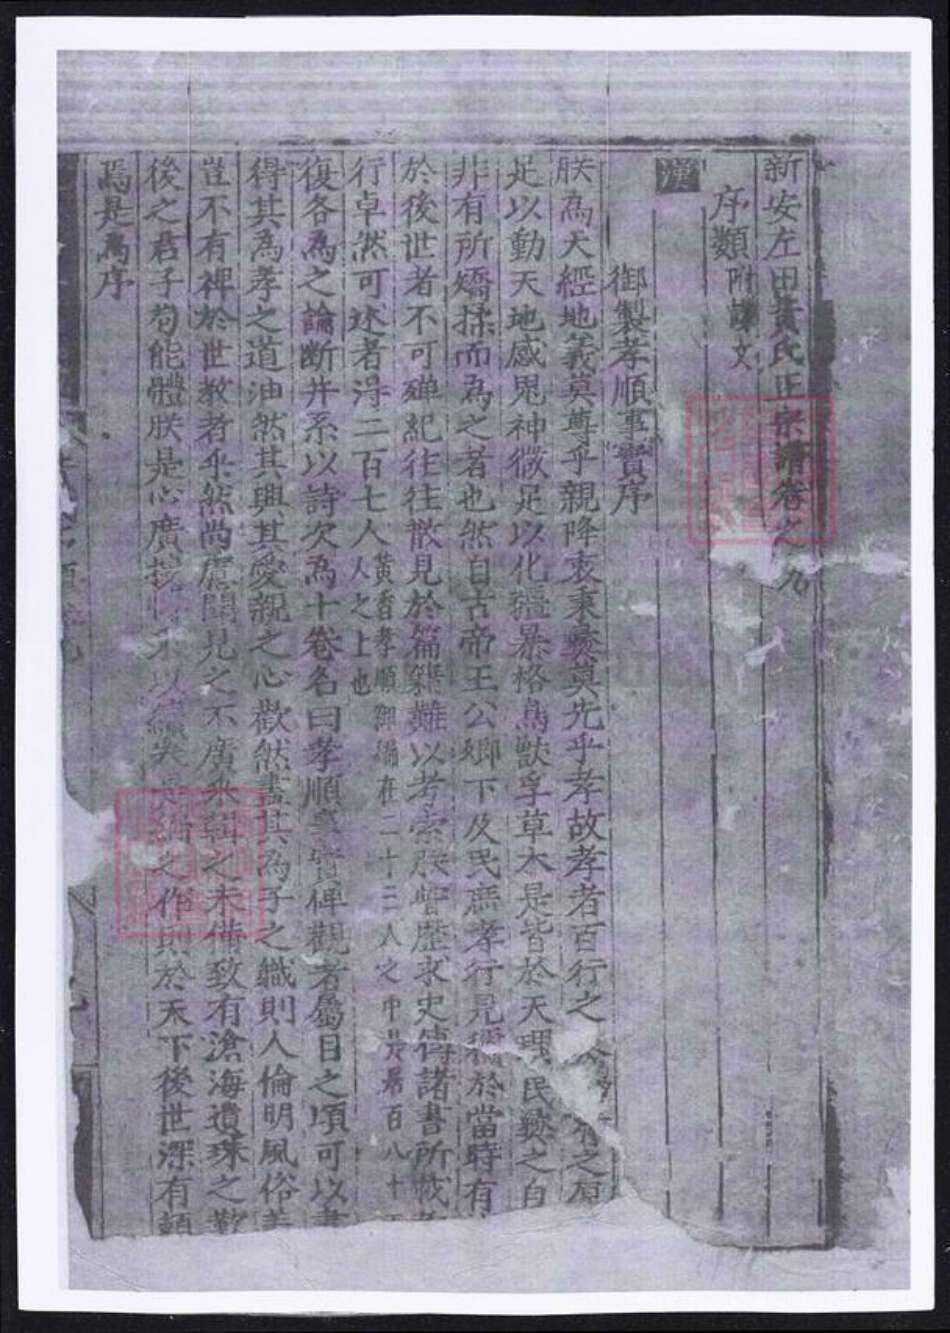 新安左田黃氏正宗譜卷之九
序類 附譔文
漢
御製孝順事實序
朕為天經地義莫尊乎親降衷秉彝莫先乎孝故孝者百行之 之原
足以動天地感鬼神微足以化彊暴格鳥獸孚草木是皆於天理民彝之自
非有所矯揉而為之者也然自古帝王公卿下及民庶孝行見稱於當時有
於後世者不可殫紀往往散見於篇籍難以考索朕嘗歷求史傳諸書所載
行卓然可述者得二百七人 黃香孝順 編在二十三人之中 百八十
人之上也
復各為之論斷并系以詩次為十卷名曰孝順事實俾觀者屬目之頃可以盡
得其為孝之道油然其興其愛親之心歡然盡其為子之職則人倫明風俗美
豈不有裨於世教者乎然尚慮聞見之不廣采輯之未備致有滄海遺珠之歎
後之君子茍能體朕是心廣 以續 編之作則於天下後世深有賴
焉是為序